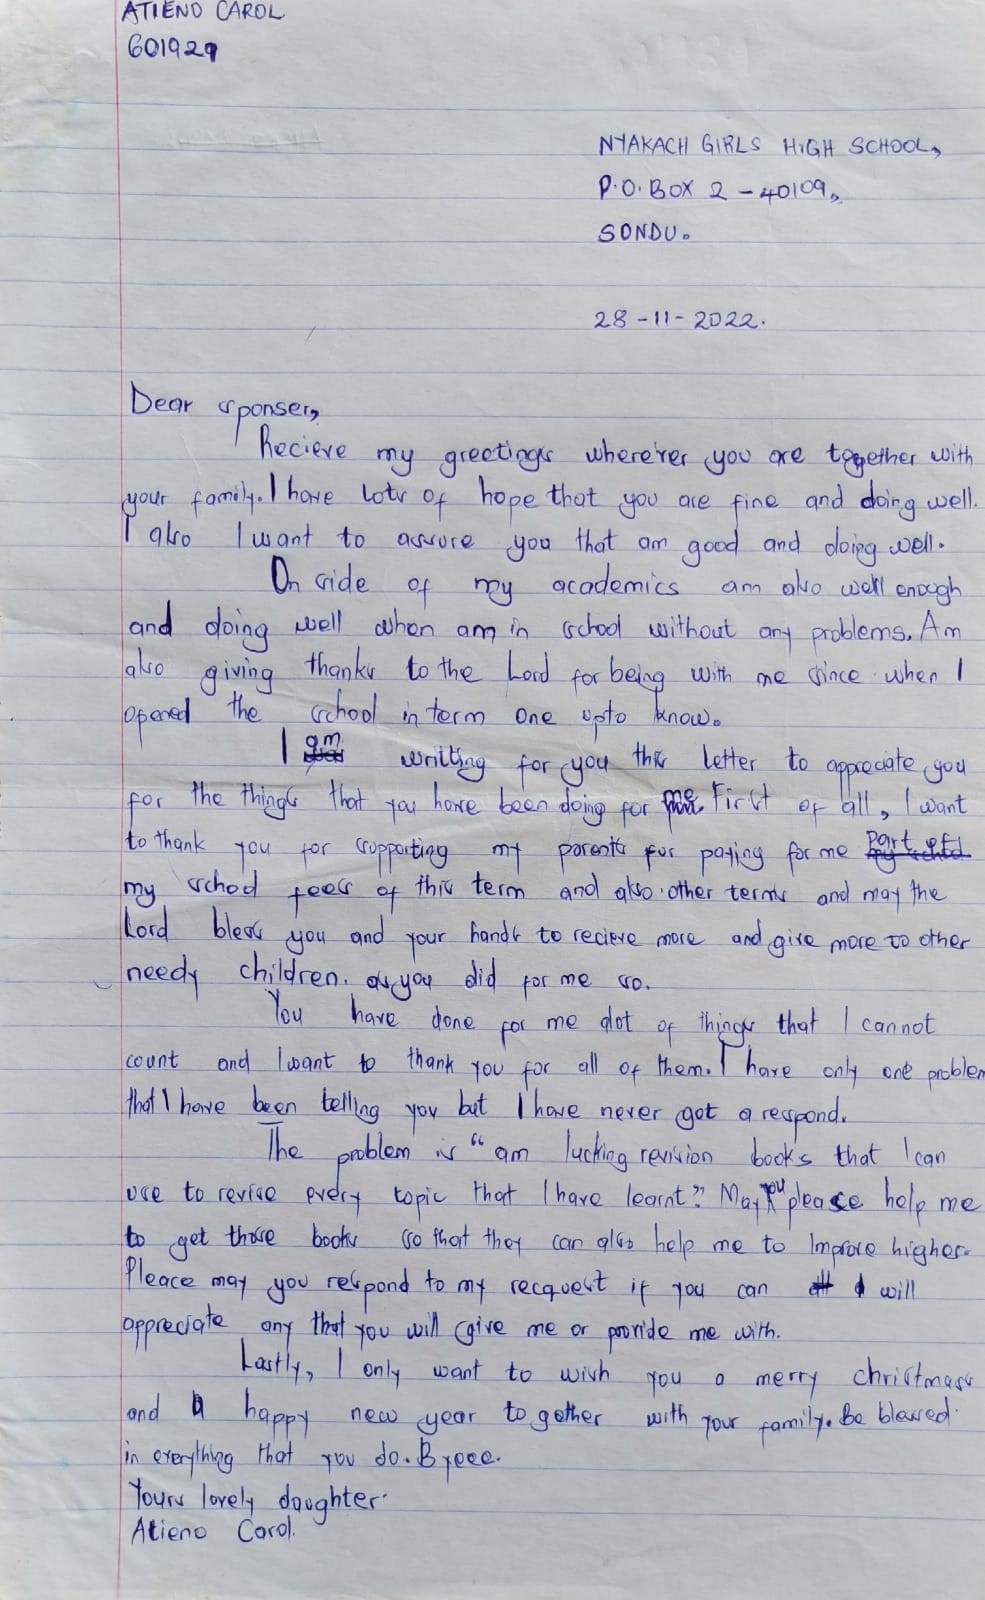 ATIENO CAROL
601929
NYAKACH GIRLS HIGH SCHOOL,
P.O. BOX 2 - 40109,
SONDU.
28 - 11 - 2022.
Dear sponser,
Recieve my greetings where'ver you are together with
your family. I have lots of hope that you are fine and doing well.
I also I want to assure you that am good and doing well.
On side of my academics am also well enough
and doing well when am in school without any problems. Am
also giving thanks to the Lord for being with me since when I
opened the school in term one upto know.
I am writting for you this letter to appreciate you
for the things that you have been doing for me. First of all, I want
to thank you for supporting my parents for paying for me part of
my school fees of this term and also other terms and may the
Lord bless you and your hands to recieve more and give more to other
needy children. as you did for me so.
You have done for me alot of things that I cannot
count and I want to thank you for all of them. I have only one problem
that I have been telling you but I have never got a respond.
The problem is "am lucking revision books that I can
use to revise every topic that I have learnt." May you please help me
to get those books so that they can also help me to Improve higher.
Pleace may you respond to my recquest if you can I will
appreciate any that you will give me or provide me with.
Lastly, I only want to wish you a merry christmass
and a happy new year together with your family. Be blessed
in everything that you do. Byeee.
Yours lovely daughter.
Atieno Carol.